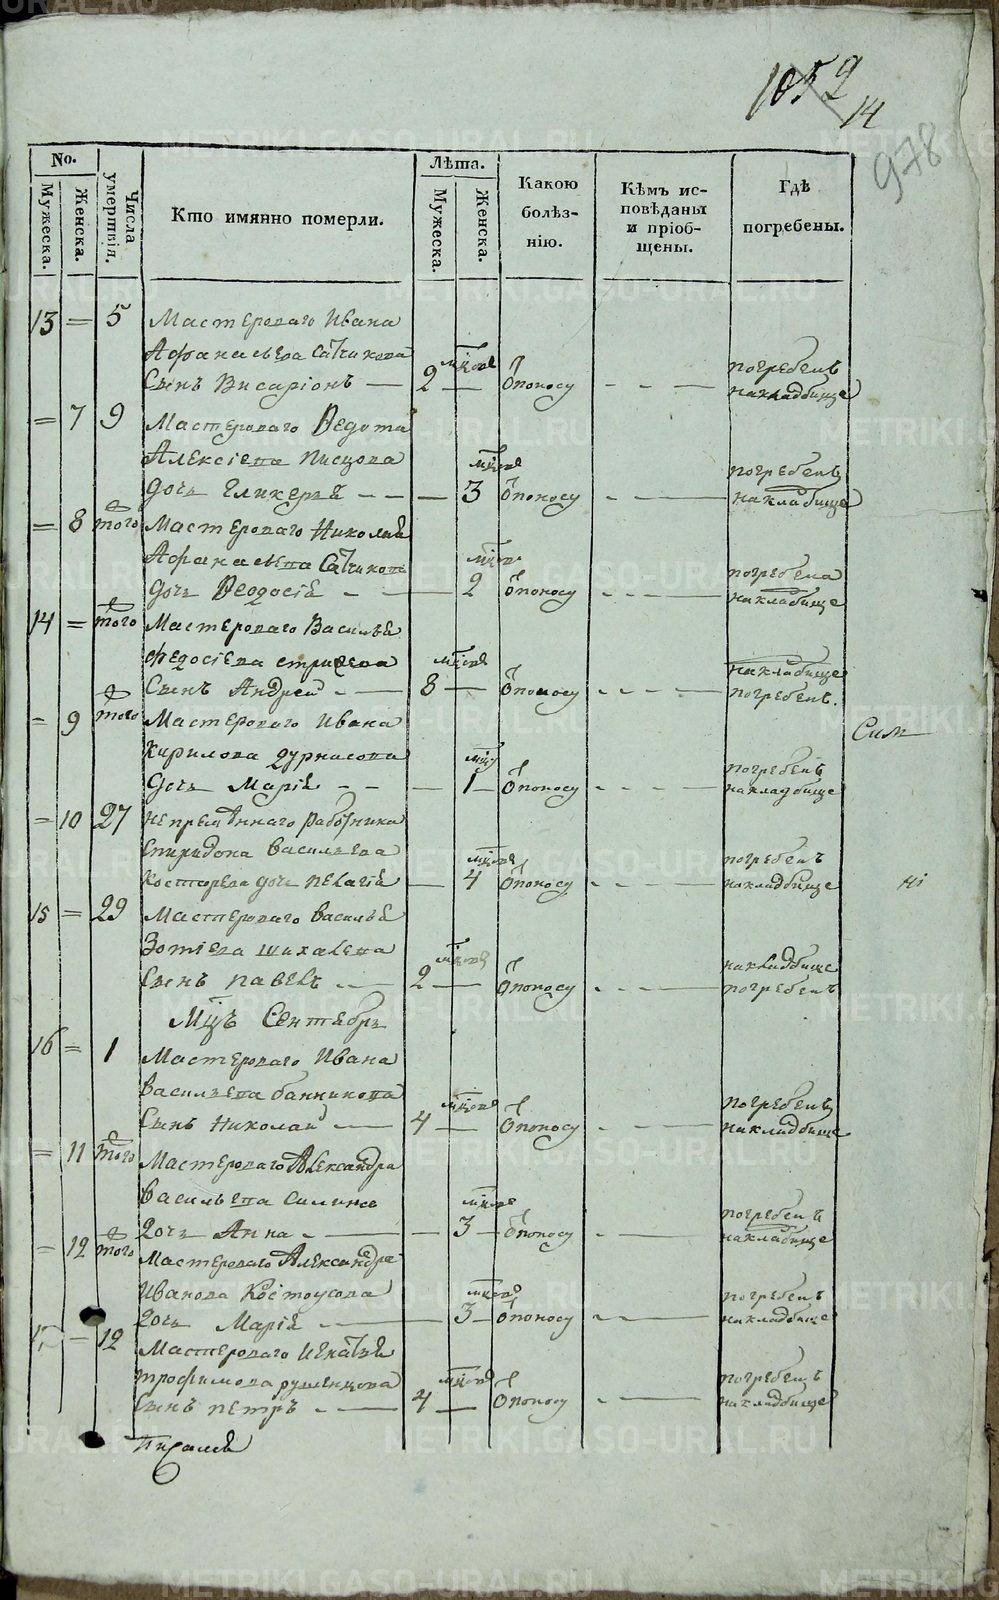 1052
14
978
No.
Мужеска.
Женска.
Числа умертвія.
Кто имянно померли.
Лѣта.
Мужеска.
Женска.
Какою болѣз-
нію.
Кѣмъ ис-
повѣданы
и пріоб-
щены.
Гдѣ
погребены.
13 = 5 Мастероваго Ивана
Афанасьева
Сынъ Висаріонъ — 2 мцовъ — Ѿ поносу - - — погребенъ
на кладбище
= 7 9 Мастероваго Ѳедота
Алексіева Писцова
дочь Гликерья - - — 3 мцовъ Ѿ поносу - — погребенъ
на клабище
= 8 того Мастероваго Николая
Афанасьева
дочь Ѳеодосія - — 2 мцовъ Ѿ поносу - - - — погребена
на клабище
14 = того Мастероваго Василья
Федосіева
Сынъ Андрей - — 8 мцовъ — Ѿ поносу - - - — на клабище
погребенъ.
= 9 того Мастероваго Ивана
Кирилова Дурнасова
дочь Марія - - — 1 мцъ — Ѿ поносу - - - — погребенъ
на кладбище
Сим
= 10 27 непремѣннаго работника
Спиридона Васильева
дочь Пелагія — 4 мцовъ Ѿ поносу - - — погребенъ
на кладбище
ні
15 = 29 Мастероваго Василья
Зотіева Шихалева
Сынъ Павелъ - — 2 мцовъ — Ѿ поносу - - - — на кладбище
погребенъ
Мцъ Сентебрь
16 = 1 Мастероваго Ивана
Васильева Банникова
Сынъ Николай — 4 мцовъ — Ѿ поносу - - — погребенъ
на кладбище
= 11 того Мастероваго Александра
Васильева Силина
Дочь Анна - — 3 мцовъ — Ѿ поносу - - — погребенъ
на клабище
= 12 того Мастероваго Александра
Иванова Костоусова
Дочь Марія — 3 мцовъ — Ѿ поносу - — погребенъ
на кладбище
17 = 12 Мастероваго Игнатья
Трофимова Румянцова
Сынъ Петръ - — 4 мцовъ — Ѿ поносу - — погребенъ
на кладбище
METRIKI.GASO-URAL.RU